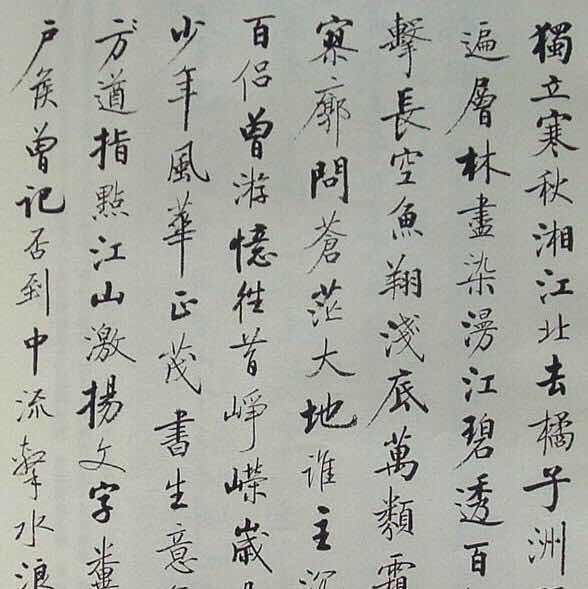 獨立寒秋湘江北去橘子洲
遍層林盡染漫江碧透百
擊長空魚翔淺底萬類霜
寥廓問蒼茫大地誰主沉
百侣曾游憶往昔崢嶸歲
少年風華正茂書生意
方遒指點江山激揚文字糞
户侯曾記否到中流擊水浪